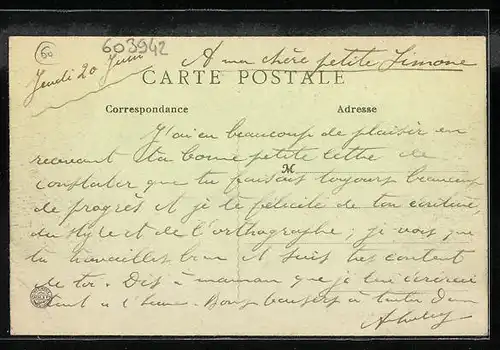 60
603942
Jeudi 20 Juin
A ma chère petite Simone
CARTE POSTALE
Correspondance
Adresse
J'ai eu beaucoup de plaisir en
recevant ta bonne petite lettre de
M
constater que tu faisais toujours beaucoup
de progrès et je te félicite de ton écriture,
du style et de l'orthographe; je vois que
tu travailles bien et suis très content
de toi. Dis à maman que je lui écrirai
tant à l'heure. Bons baisers à toutes deux